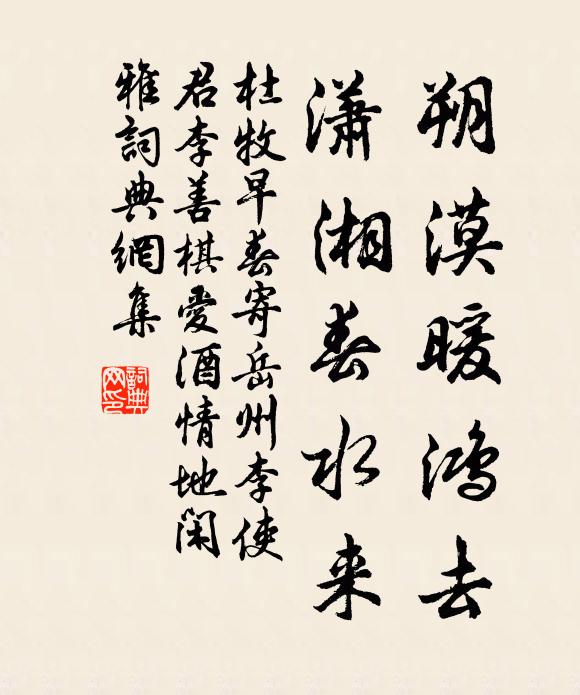 朔漠暖鸿去
潇湘春水来
杜牧早春寄岳州李使
君李善棋爱酒情地闲
雅詞典網集
詞典
网印